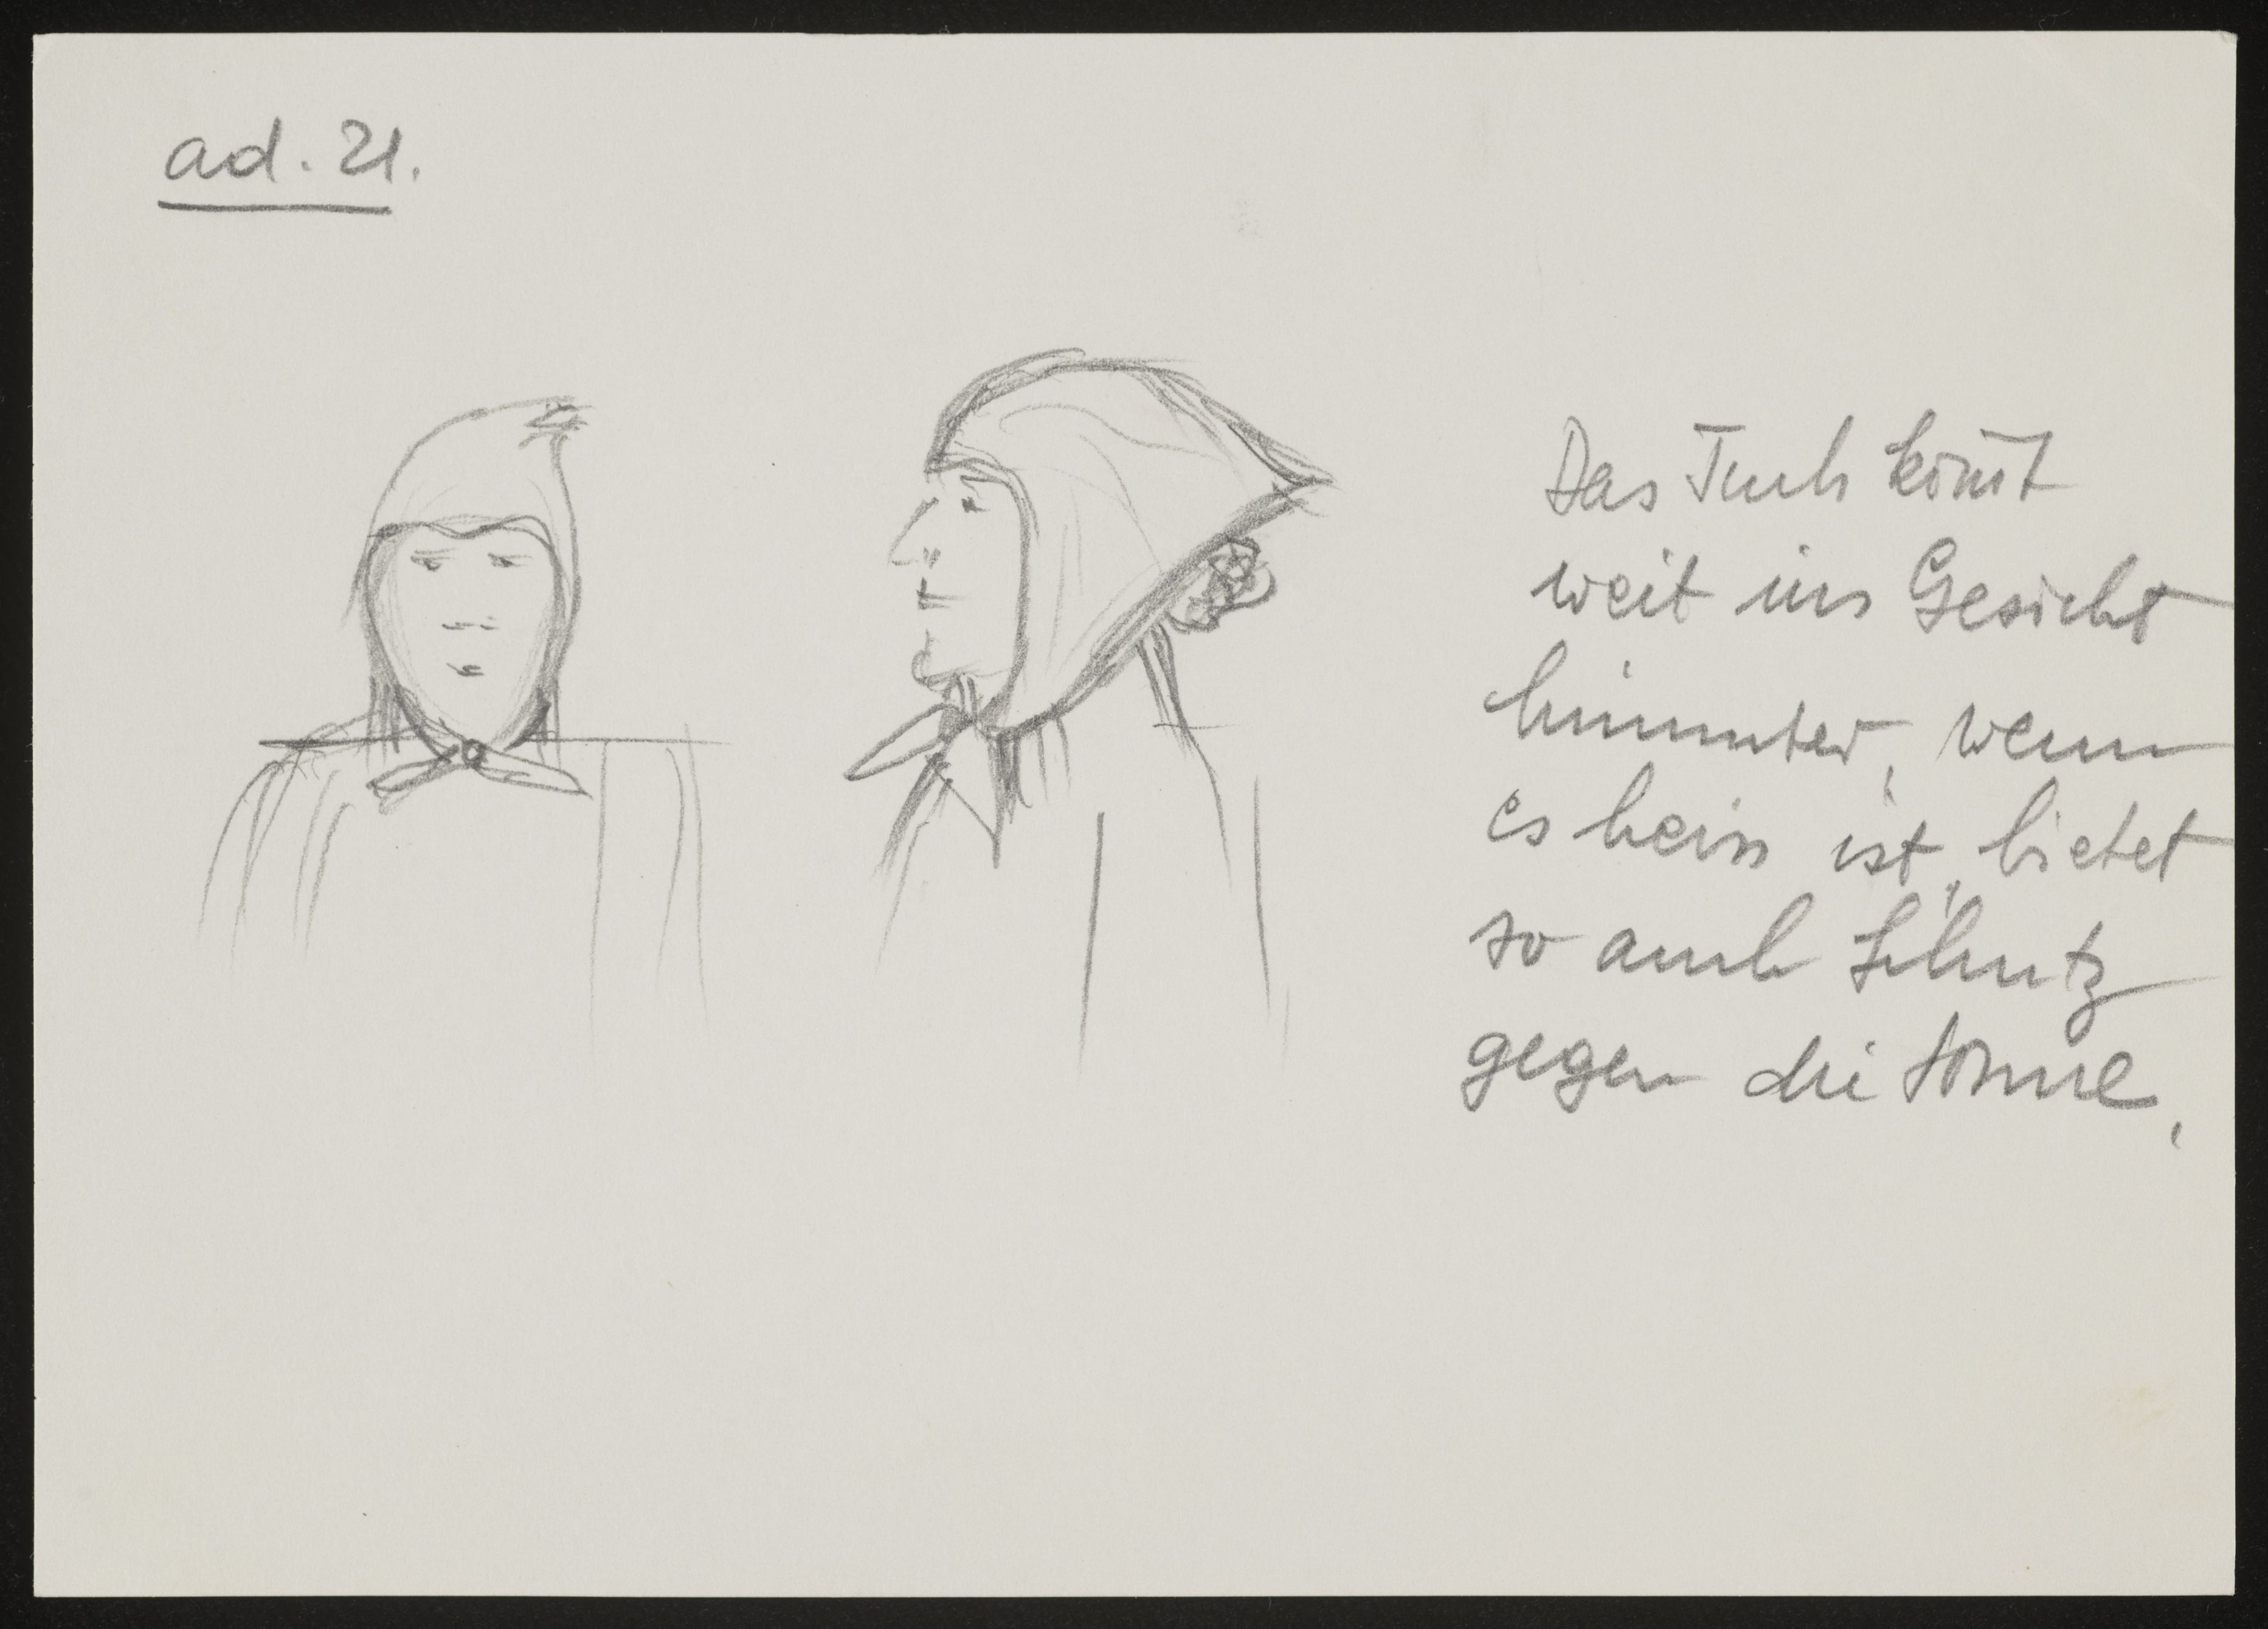 ad. 21.
Das Tuch kom̄t
weit ins Gesicht
hinunter, wenn
es heiss ist, bietet
so auch Schutz
gegen die Sonne.